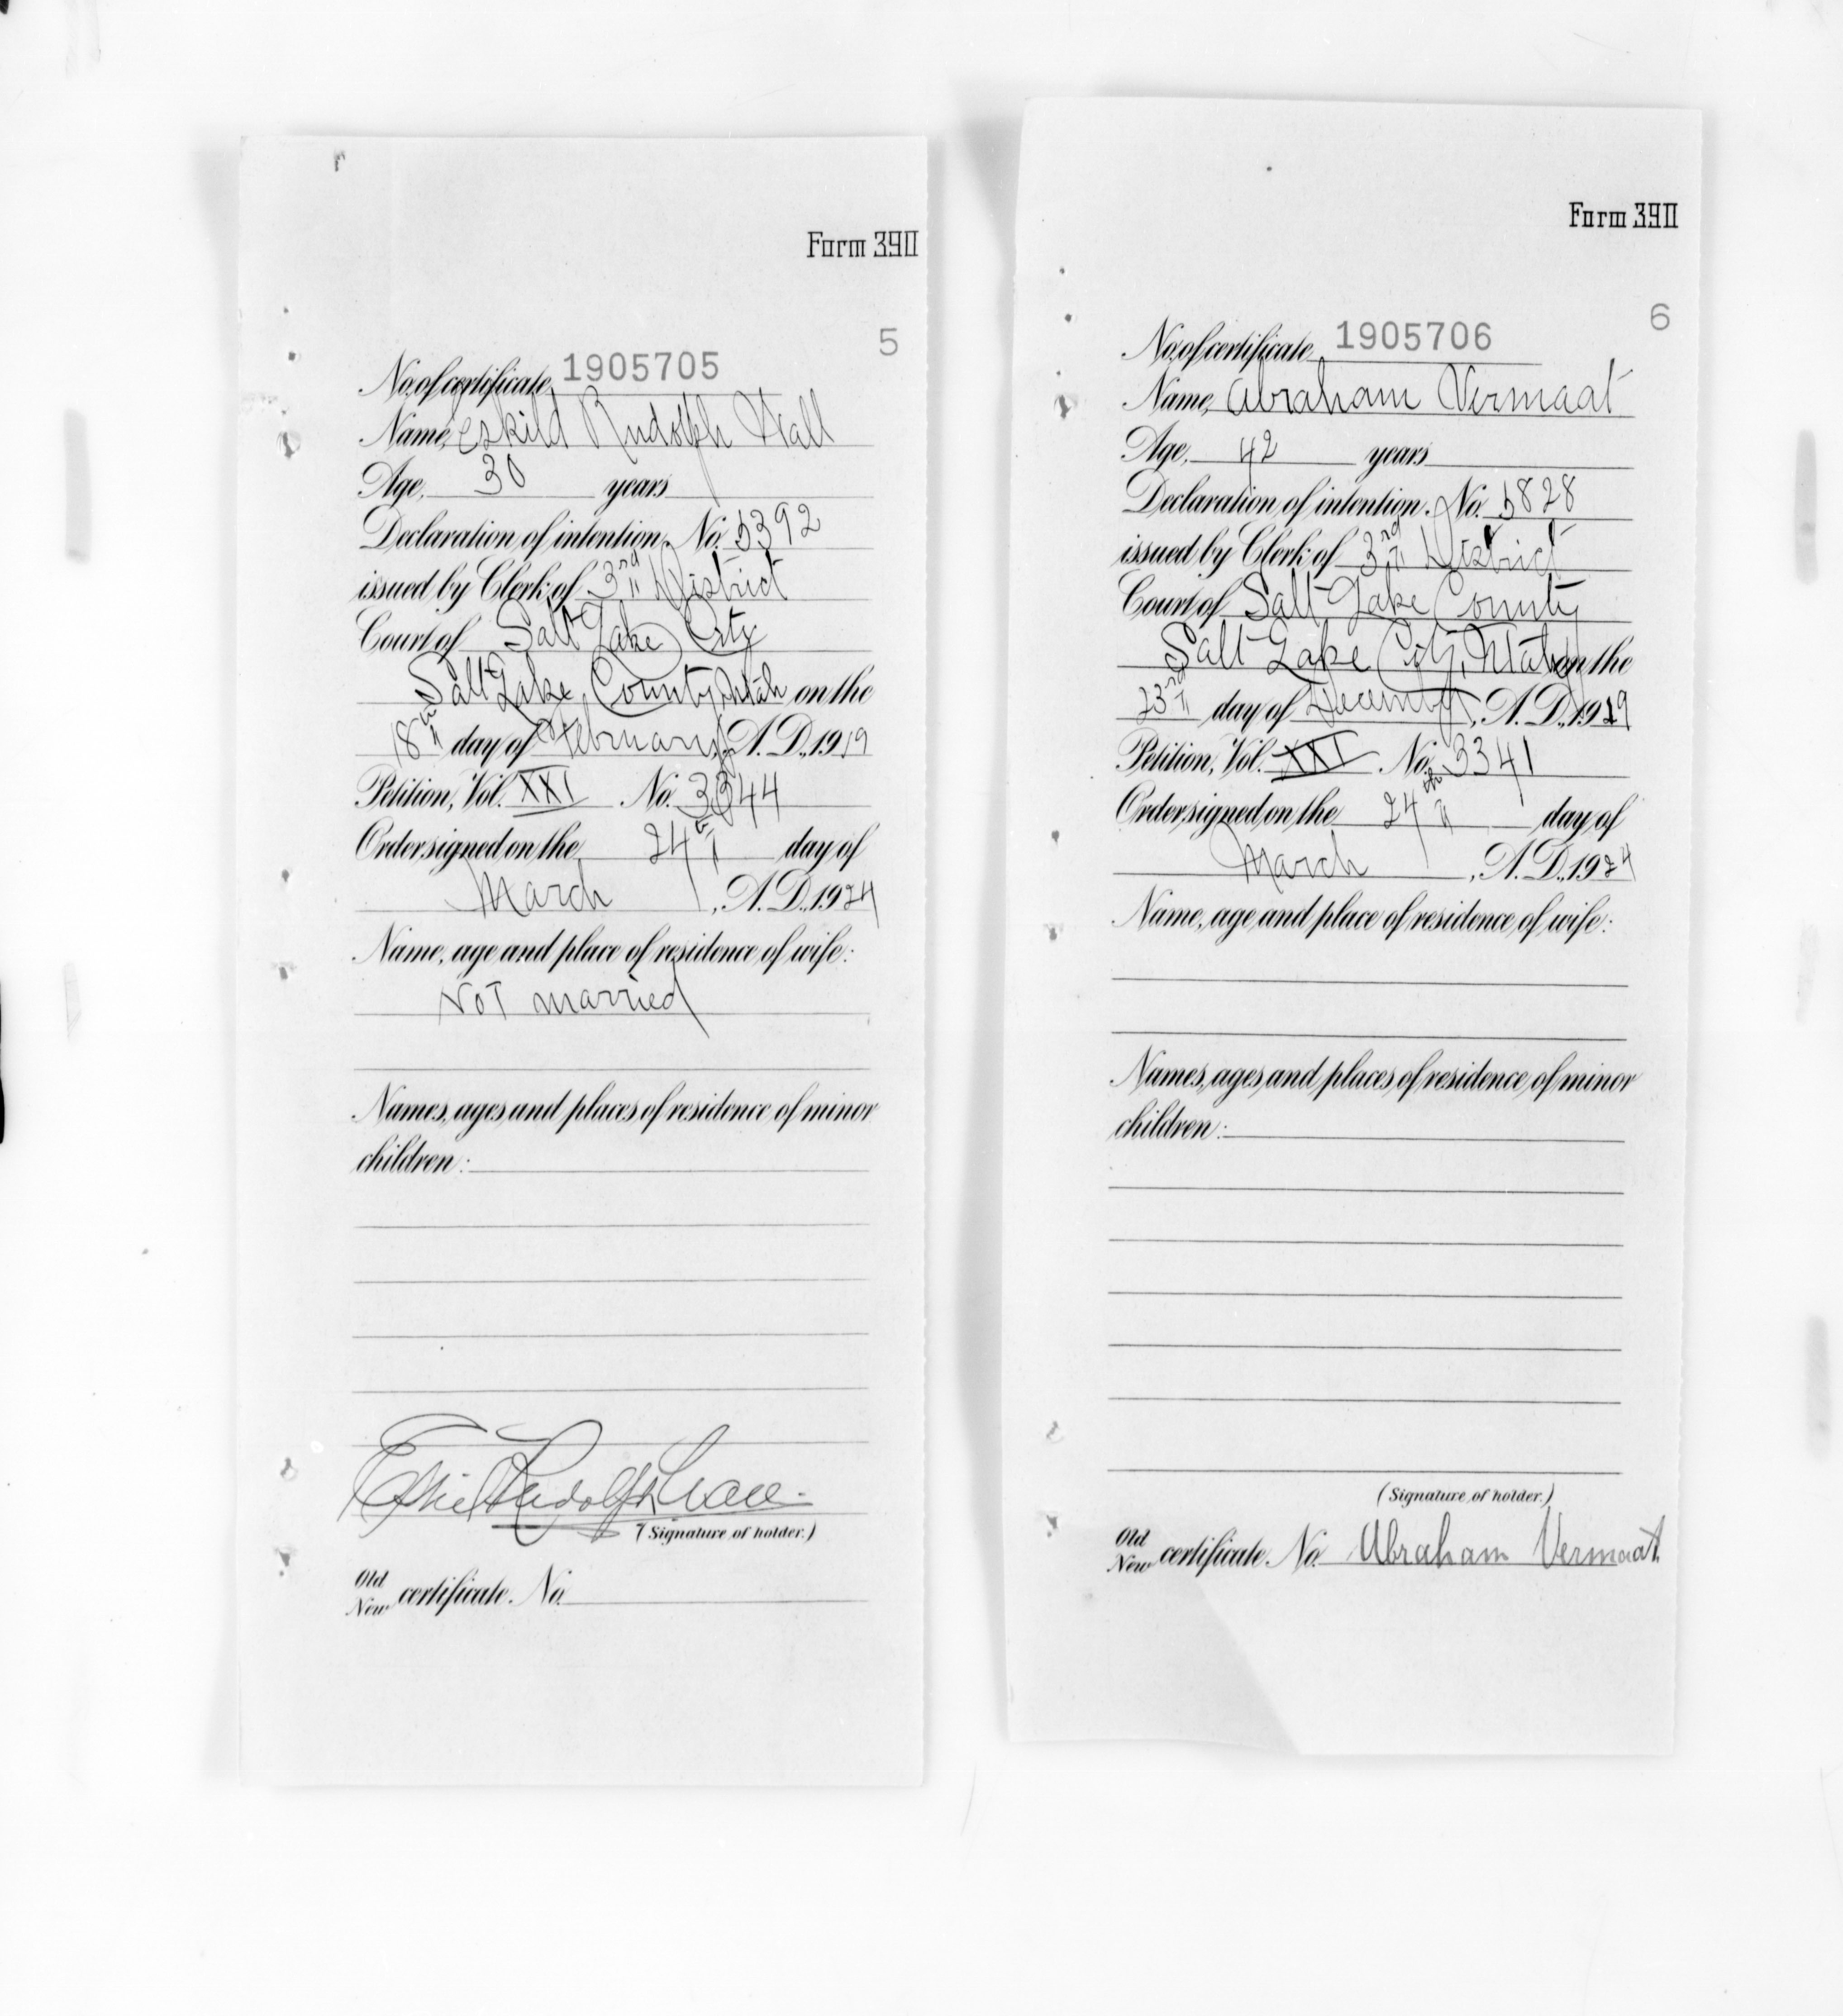 Form 390
5
No. of certificate 1905705
Name, Eskild Rudolph Wall
Age, 30 years
Declaration of intention, No. 5392
issued by Clerk of 3rd District
Court of Salt Lake City
Salt Lake County, Utah on the
18th day of February, A. D., 1919
Petition, Vol. XXI No. 3344
Order signed on the 24th day of
March, A. D., 1924
Name, age and place of residence of wife:
Not married
Names, ages and places of residence of minor
children:
Eskild Rudolph Wall
(Signature of holder.)
Old
New certificate No.
Form 390
6
No. of certificate 1905706
Name, Abraham Vermaat
Age, 42 years
Declaration of intention. No. 5828
issued by Clerk of 3rd District
Court of Salt Lake County
Salt Lake City, Utah, on the
23rd day of December, A. D., 1919
Petition, Vol. XXI No. 3341
Order signed on the 24th day of
March, A. D., 1924
Name, age and place of residence of wife:
Names, ages and places of residence of minor
children:
(Signature of holder.)
Old
New certificate No. Abraham Vermaat